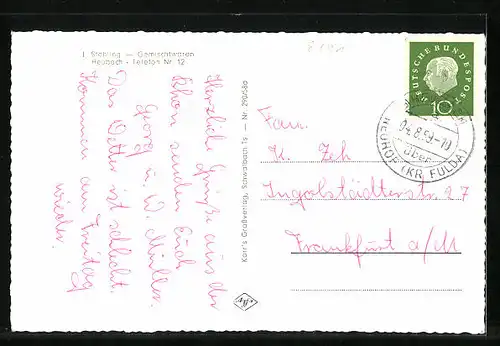 J. Storning — Gemischtwaren
Heubach · Telefon Nr 12
Herzliche Grüße aus der
Rhön senden Euch
Georg u. W. Müller.
Das Wetter ist schlecht.
Kommen am Freitag
wieder.
Korr's Großverlag, Schwalbach Ts — Nr. 290580
DEUTSCHE BUNDESPOST
10
-4.8.59-10
über
NEUHOF (KR FULDA)
Fam.
K. Zeh
Ingolstädterstr 27
Frankfurt a/M